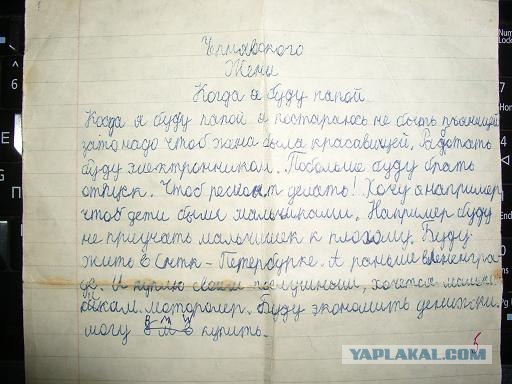 Чернявского
Жени
Когда я буду папой
Когда я буду папой я постараюсь не быть пъяницей
зато надо чтоб жена была красавицей. Работать
буду электронником. Побольше буду брать
отпуск. Чтоб ремонт делать! Хочу я например,
чтоб дети были мальчиками. Например буду
не приучать мальчишек к плохому. Буду
жить в Санкт-Петербурке. А раньше в Ленингра-
де. И куплю своим послушным, хочется мальчи-
кам мотороллер. Буду экономить денюжки.
могу купить.
5
YAPLAKAL.COM